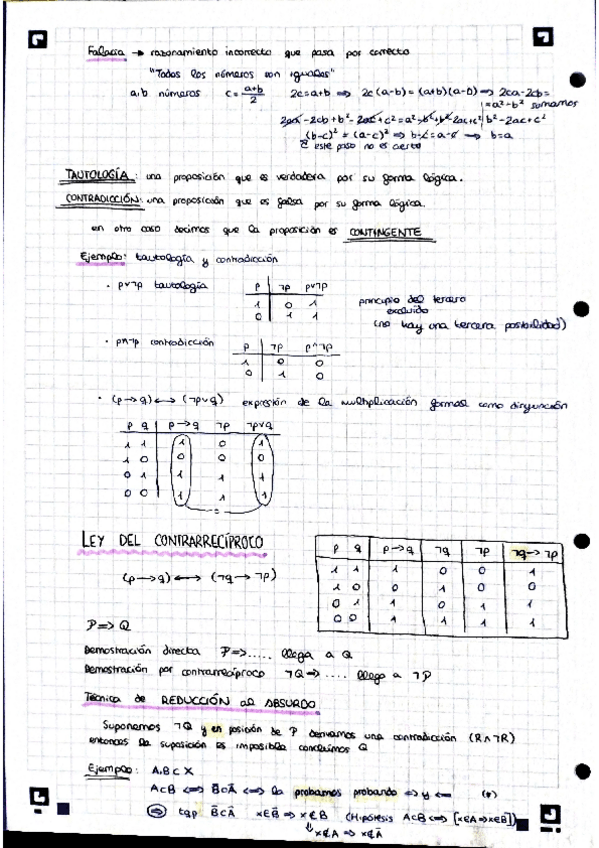 Falacia → razonamiento incorrecto que pasa por correcto
"Todos los números son iguales"
a,b números c = a+b/2 2c = a+b ⟹ 2c(a-b) = (a+b)(a-b) ⟹ 2ca-2cb =
= a²-b² sumamos
2ac - 2cb + b² - 2ac + c² = a² - b² + b² - 2ac + c² b² - 2ac + c²
(b-c)² = (a-c)² ⟹ b-c = a-c → b=a
este paso no es cierto
TAUTOLOGÍA: una proposición que es verdadera por su forma lógica.
CONTRADICCIÓN: una proposición que es falsa por su forma lógica.
en otro caso decimos que la proposición es CONTINGENTE
Ejemplo: tautología y contradicción
· p∨¬p tautología
p ¬p p∨¬p
1 0 1
0 1 1
principio del tercero
excluido
(no hay una tercera posibilidad)
· p∧¬p contradicción
p ¬p p∧¬p
1 0 0
0 1 0
· (p→q) ⟷ (¬p∨q) expresión de la multiplicación formal como disyunción
p q p→q ¬p ¬p∨q
1 1 1 0 1
1 0 0 0 0
0 1 1 1 1
0 0 1 1 1
=
LEY DEL CONTRARRECÍPROCO
(p→q) ⟷ (¬q→¬p)
p q p→q ¬q ¬p ¬q→¬p
1 1 1 0 0 1
1 0 0 1 0 0
0 1 1 0 1 1
0 0 1 1 1 1
P ⟹ Q
Demostración directa P ⟹ ..... llega a Q
Demostración por contrarrecíproco ¬Q ⟹ .... llego a ¬P
Técnica de REDUCCIÓN al ABSURDO
Suponemos ¬Q y en posición de P derivamos una contradicción (R∧¬R)
entonces la suposición es imposible concluimos Q
Ejemplo: A,B⊂X
A⊂B ⟺ B̄⊂Ā ⟺ la probamos probando ⟹ y ⟸ (*)
⟹ tqp B̄⊂Ā x∈B̄ ⟹ x∉B (Hipótesis A⊂B ⟺ [x∈A ⟹ x∈B])
x∉A ⟹ x∈Ā